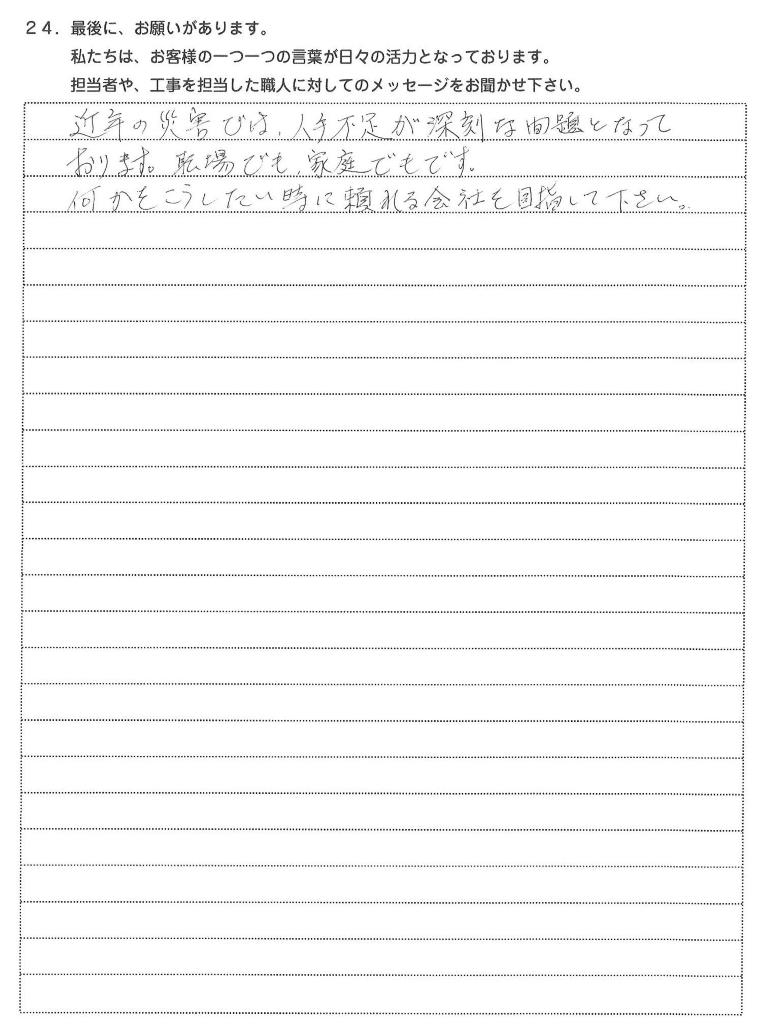 ２４．最後に、お願いがあります。
私たちは、お客様の一つ一つの言葉が日々の活力となっております。
担当者や、工事を担当した職人に対してのメッセージをお聞かせ下さい。
近年の災害では、人手不足が深刻な問題となって
おります。職場でも、家庭でもです。
何かをこうしたい時に頼れる会社を目指して下さい。